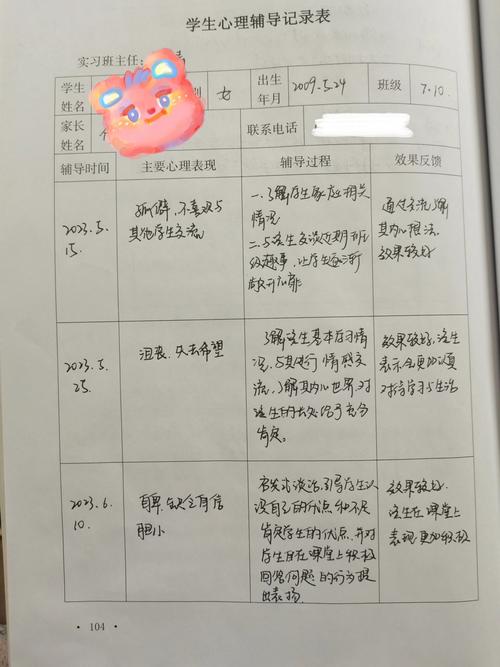 学生心理辅导记录表
实习班主任:
学生姓名 别 女 出生年月 2009.5.24 班级 7.10.
家长姓名 联系电话
辅导时间 主要心理表现 辅导过程 效果反馈
2023.5.15
孤僻,不喜欢与
其他学生交流
一.了解学生家庭相关
情况
二.与学生交谈近期班
级趣事,让学生逐渐
敞开心扉
通过交流了解
其内心想法.
效果较好
2023.5.25
沮丧.失去希望
了解该生基本学习情
况,与其进行情感交
流,了解其内心世界.对
该生的长处给予充分
肯定。
效果较好,该生
表示会更加认真
对待学习与生活
2023.6.10.
自卑.缺乏自信
胆小
启发式谈话,引导学生认
识自己的优点和不足
肯定学生的优点,并对
学生在课堂上积极
回答问题的行为提
出表扬.
效果较好.
该生在课堂上
表现更加积极
· 104 ·